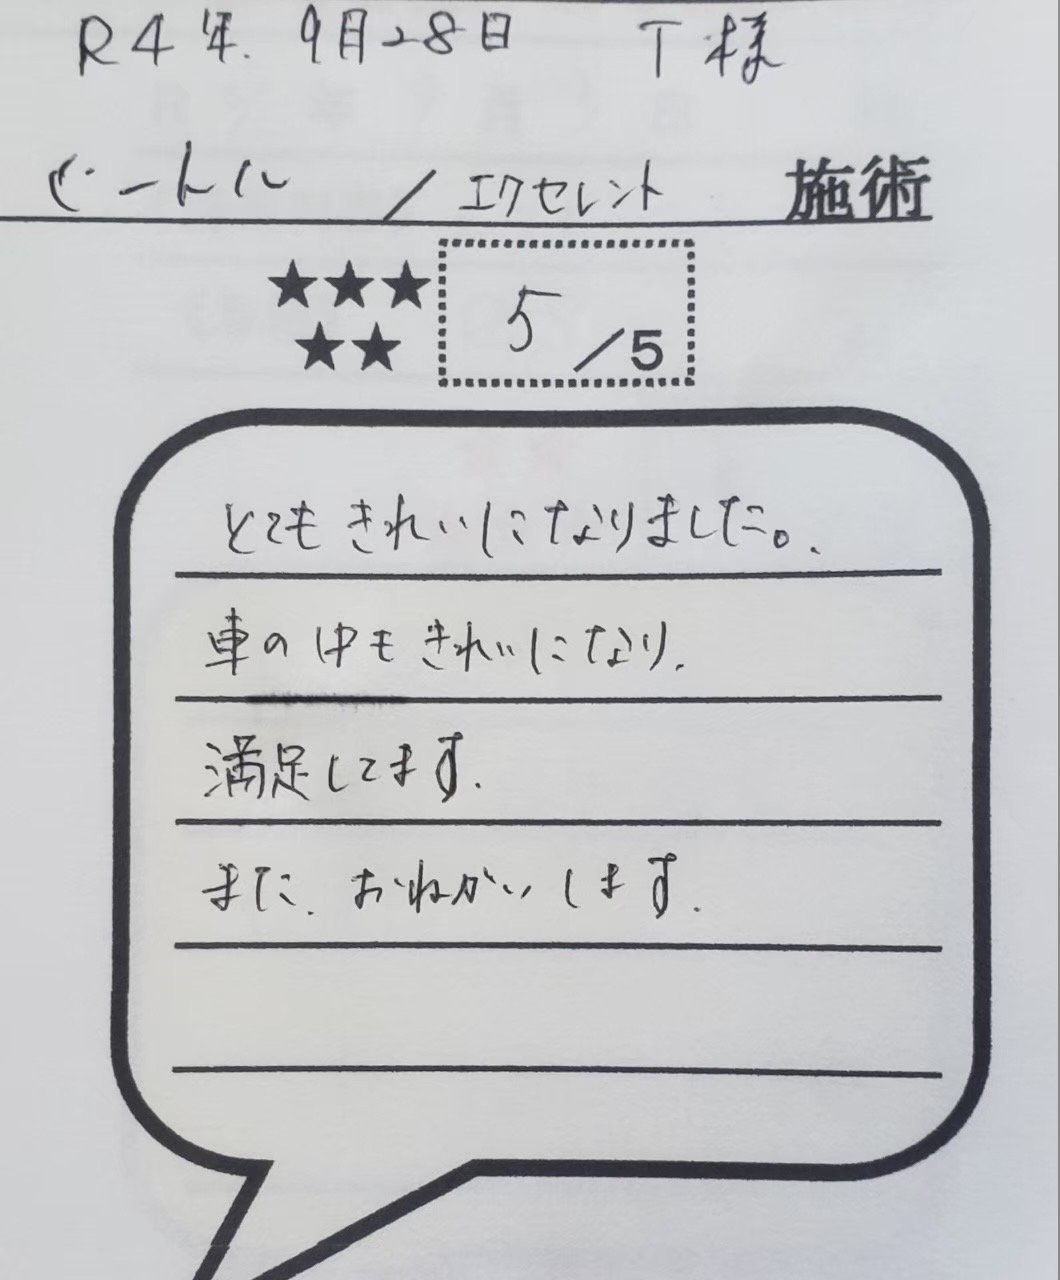 R4年. 9月28日 T様
ビートル / エクセレント 施術
★★★
★★
5/5
とてもきれいになりました。.
車の中もきれいになり.
満足してます.
また. おねがいします.